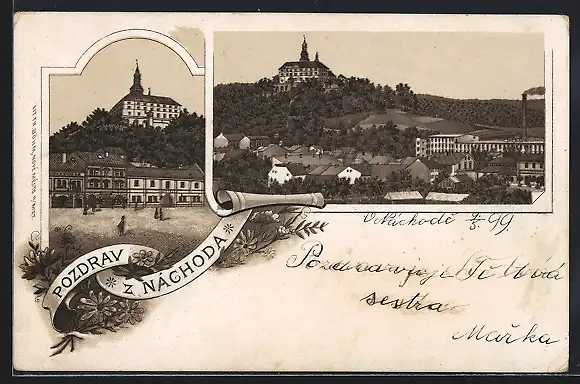 POZDRAV
Z NÁCHODA
V Náchodě 7/5 99
Pozdravuje Tě tvá
sestra
Mařka